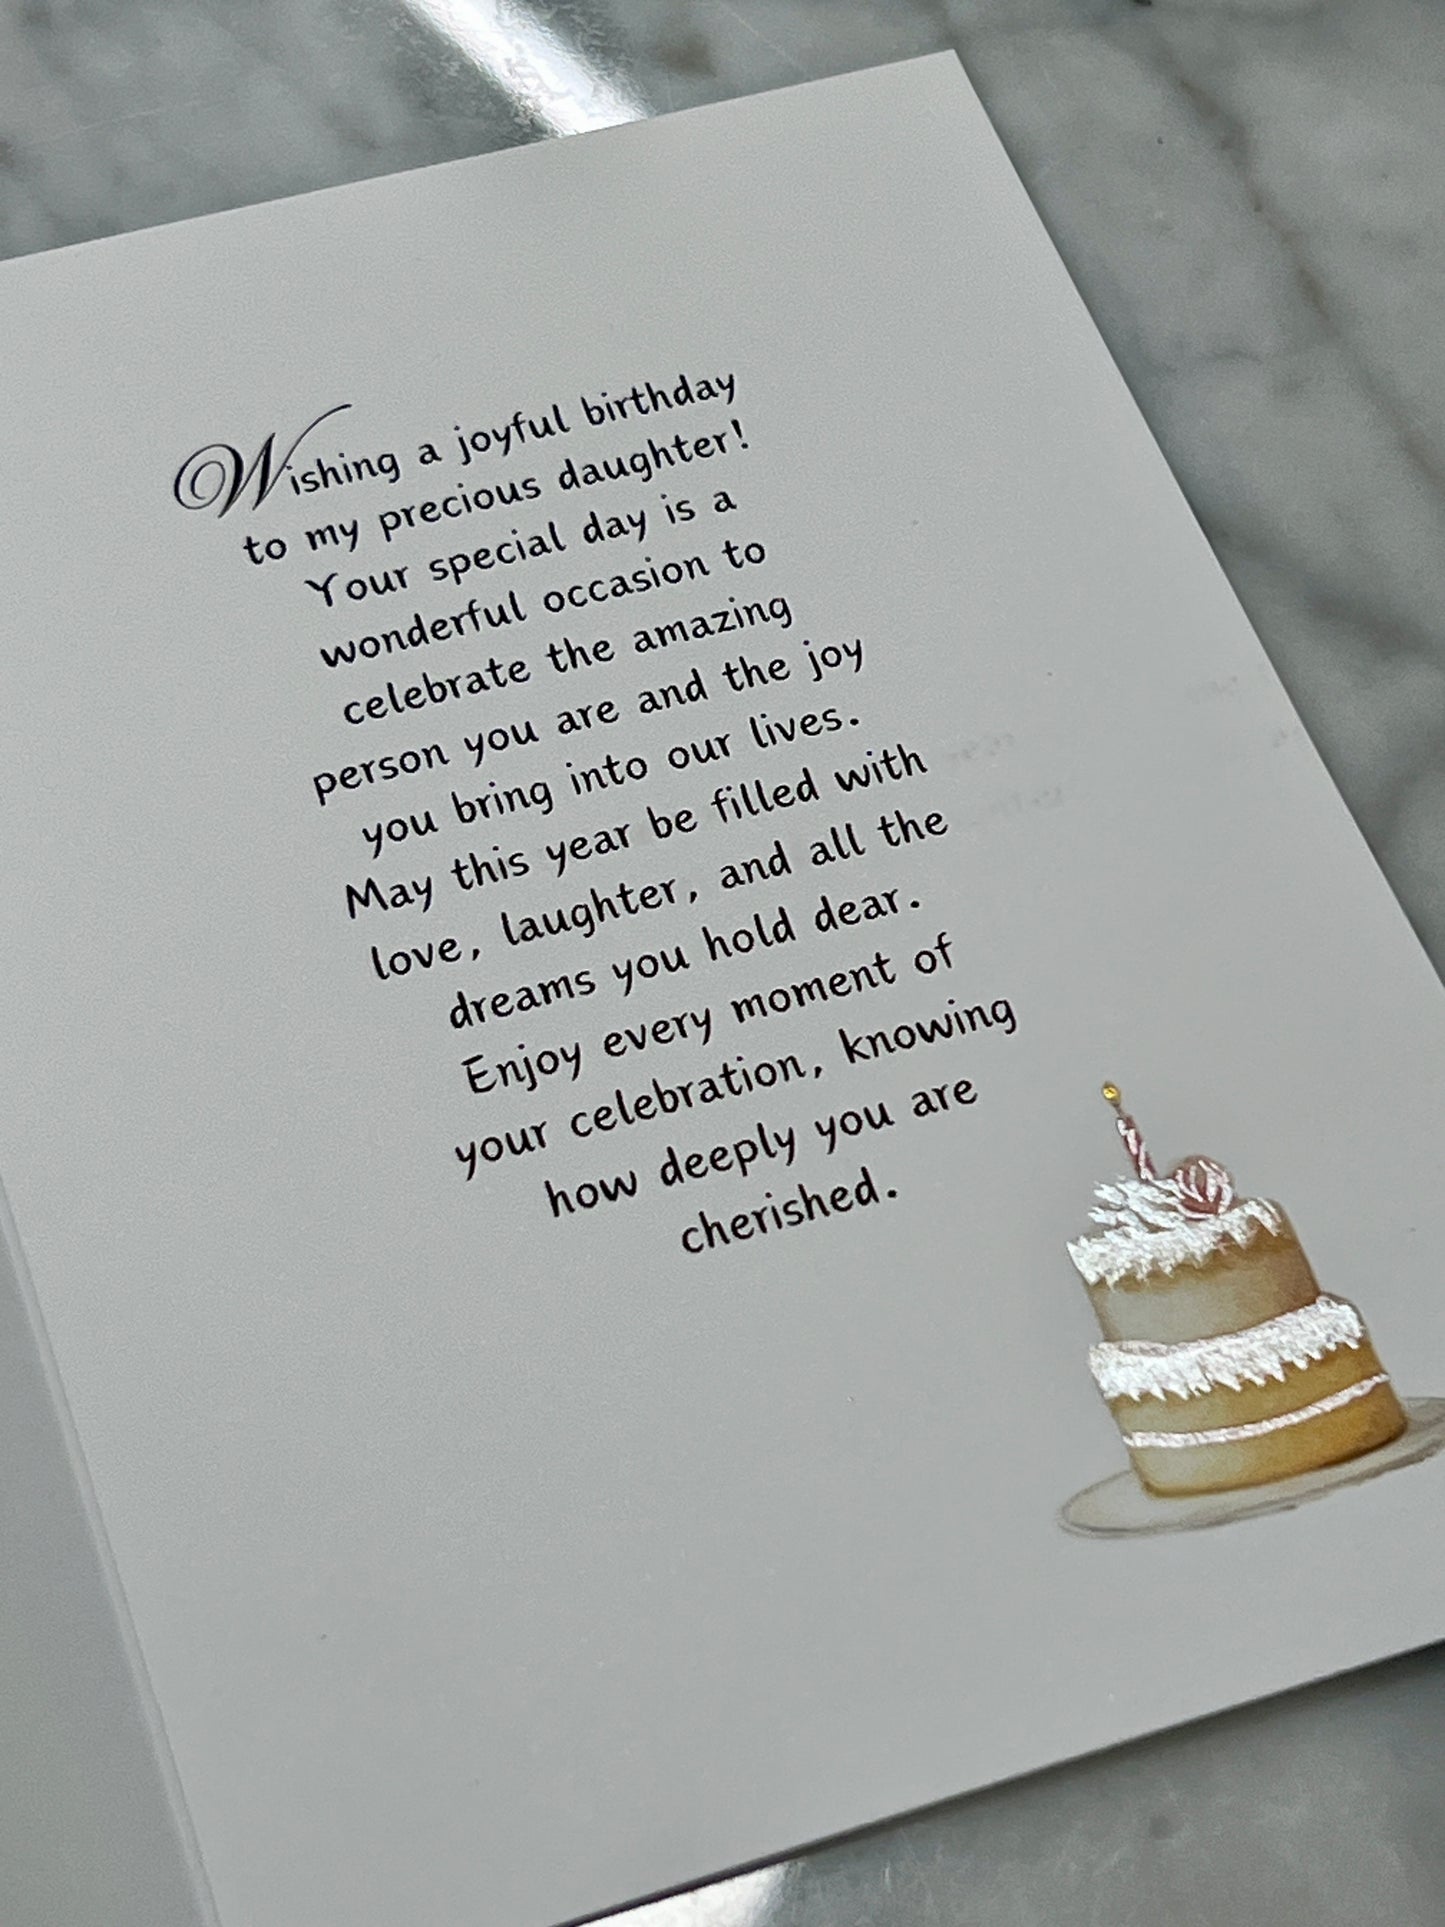 Wishing a joyful birthday
to my precious daughter!
Your special day is a
wonderful occasion to
celebrate the amazing
person you are and the joy
you bring into our lives.
May this year be filled with
love, laughter, and all the
dreams you hold dear.
Enjoy every moment of
your celebration, knowing
how deeply you are
cherished.